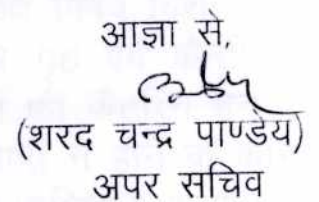 आज्ञा से,
(शरद चन्द्र पाण्डेय)
अपर सचिव